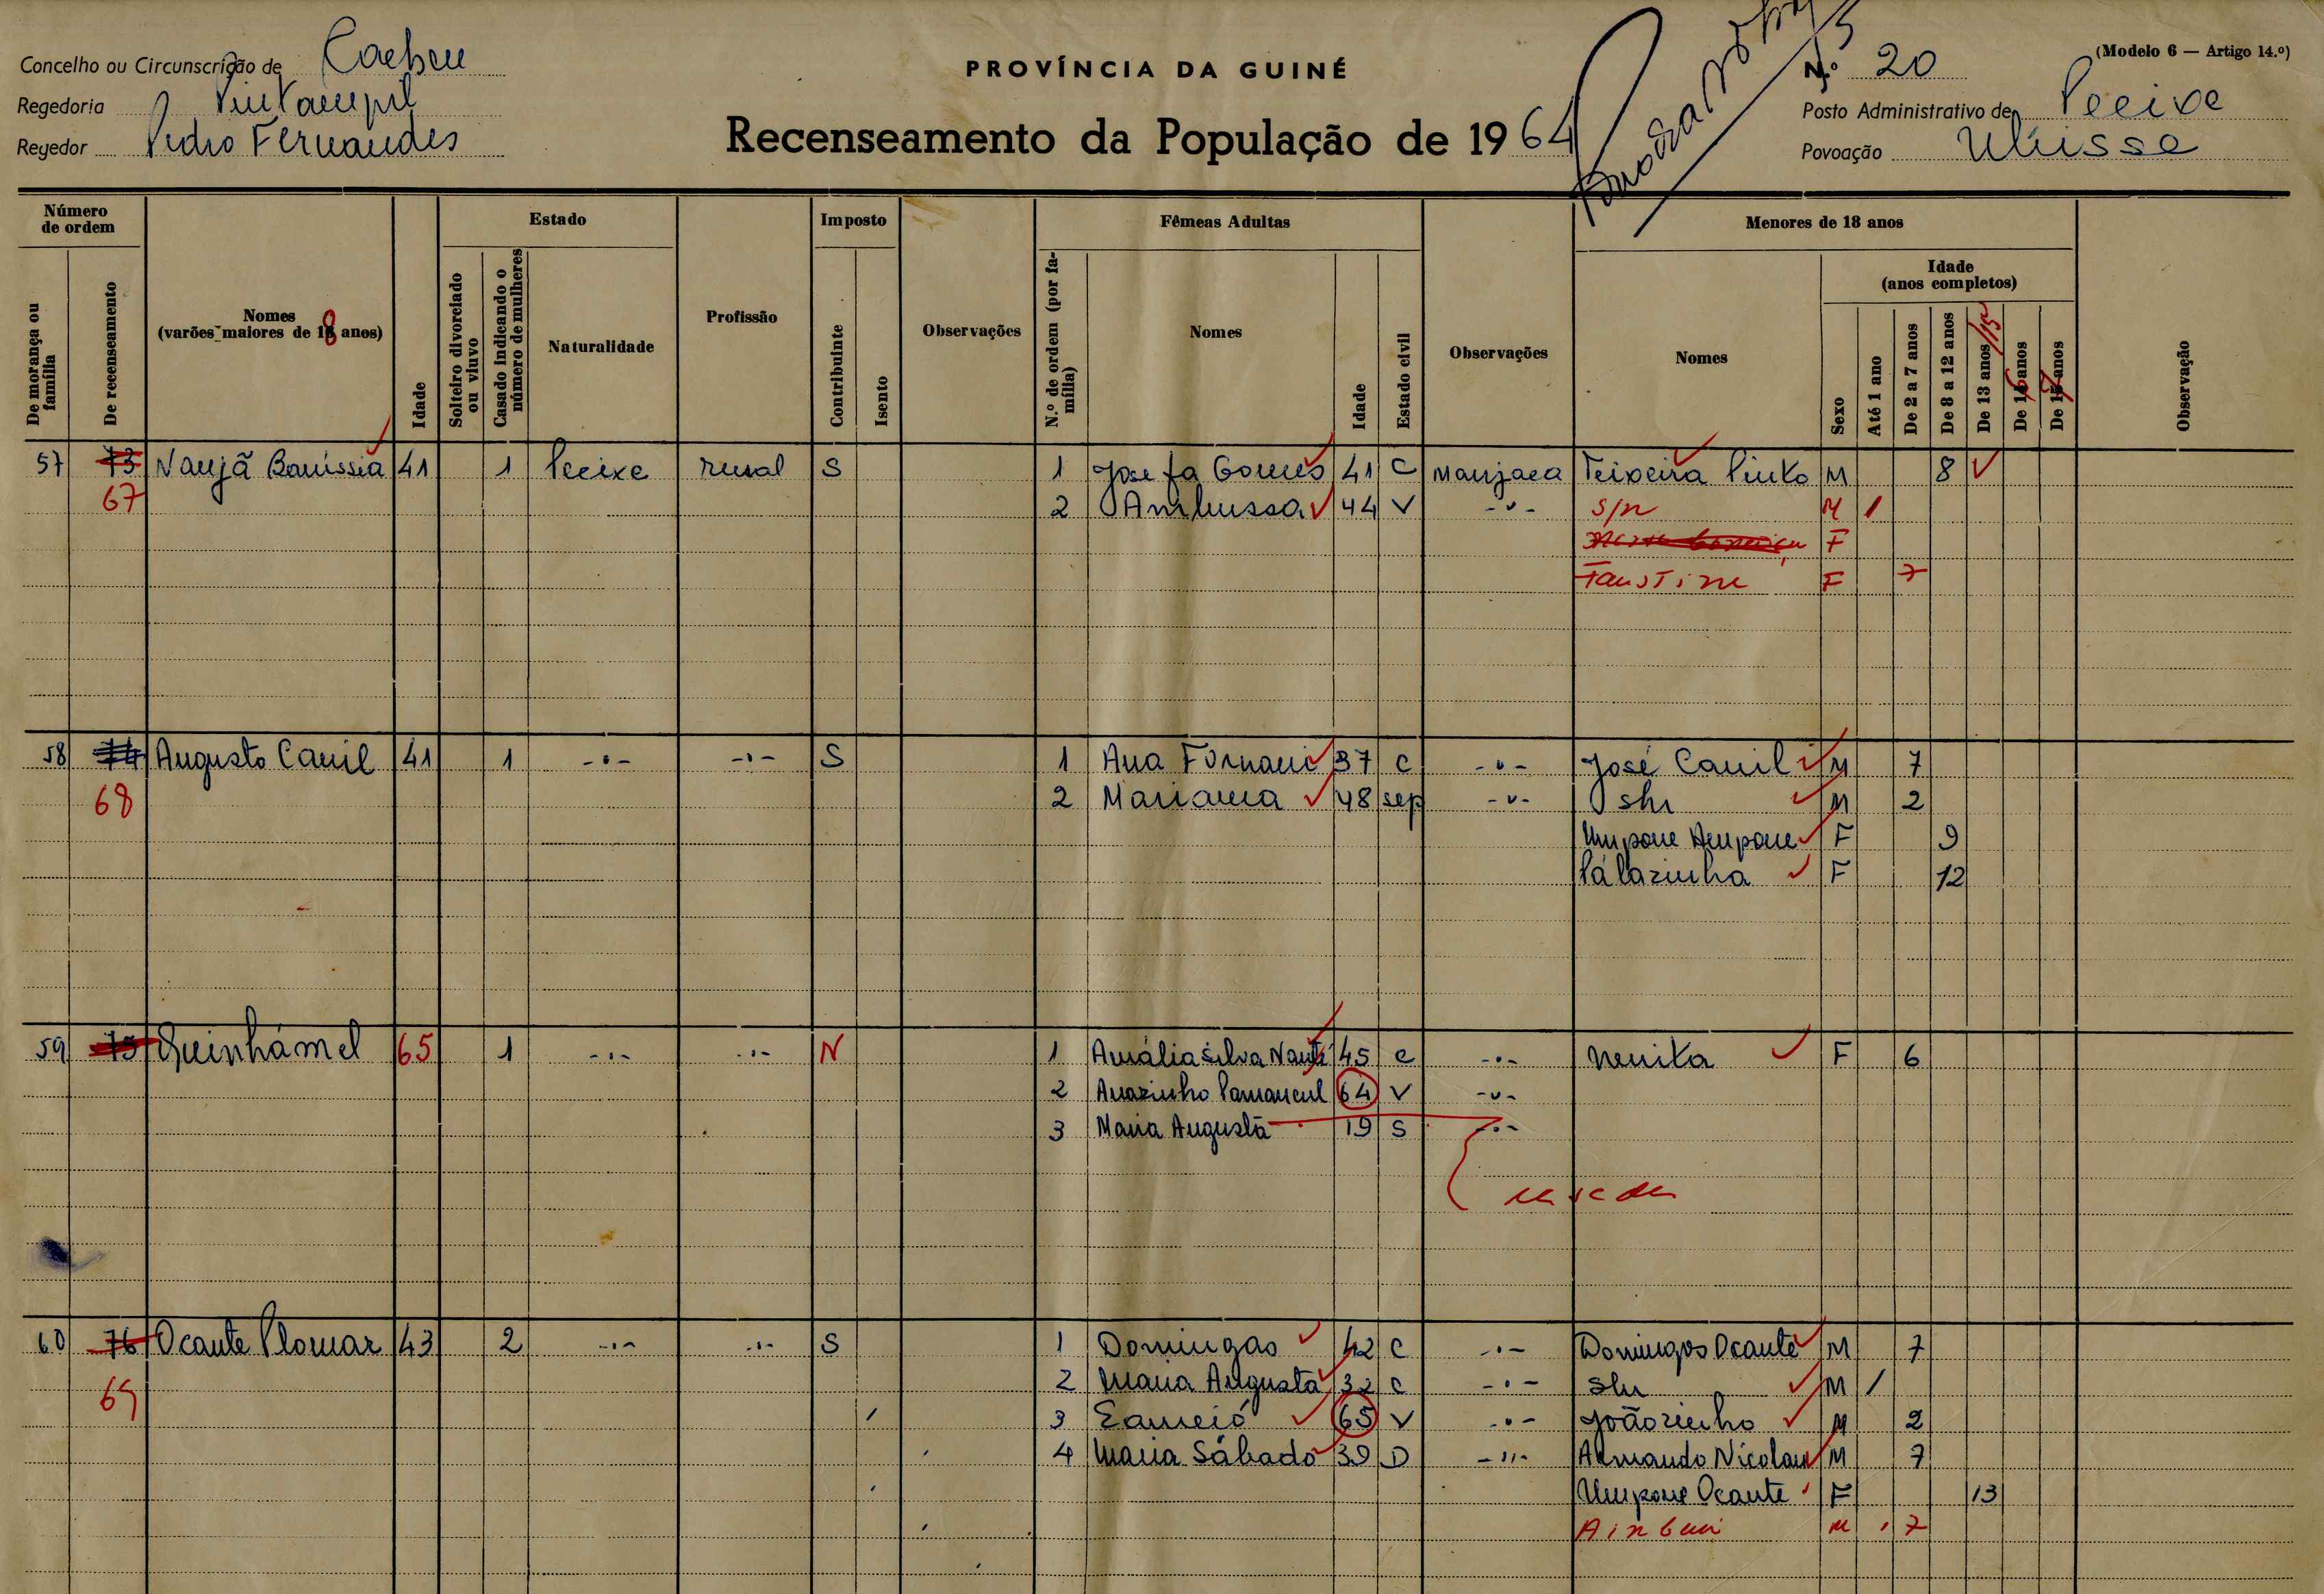 PROVÍNCIA DA GUINÉ
(Modelo 6 — Artigo 14.º)
Concelho ou Circunscrição de Cacheu
N.º 20
Regedoria
Posto Administrativo de Pecixe
Regedor Pedro Fernandes
Recenseamento da População de 1964
Povoação
Número de ordem
De morança ou família
De recenseamento
Nomes
(varões maiores de 18 anos)
Idade
Estado
Solteiro divorciado ou viuvo
Casado indicando o número de mulheres
Naturalidade
Profissão
Imposto
Contribuinte
Isento
Observações
Fêmeas Adultas
N.º de ordem (por família)
Nomes
Idade
Estado civil
Observações
Menores de 18 anos
Nomes
Sexo
Idade
(anos completos)
Até 1 ano
De 2 a 7 anos
De 8 a 12 anos
De 13 anos /15
De 16 anos
De 17 anos
Observação
57 73 Naujã 41 1 Pecixe rural S 1 Josefa Gomes 41 C Manjaca Teixeira Pinto M 8
67 2 Ambussa 44 V -"- s/n M 1
F
Faustina F 7
58 74 Augusto Canil 41 1 -"- -"- S 1 Ana 37 C -"- José Canil M 7
68 2 Mariama 48 sep -"- s/n M 2
Umpone Ampone F 9
F 12
59 75 Quinhámel 65 1 -"- -"- N 1 Amália Silva 45 C -"- Nenita F 6
2 64 V -"-
3 Maria Augusta 19 S -"-
60 76 Ocante Plomar 43 2 -"- -"- S 1 Domingas 42 C -"- Domingos Ocante M 7
69 2 Maria Augusta 32 C -"- s/n M 1
3 65 V -"- Joãozinho M 2
4 Maria Sábado 39 D -"- Armando Nicolau M 7
Umpone Ocante F 13
M 7